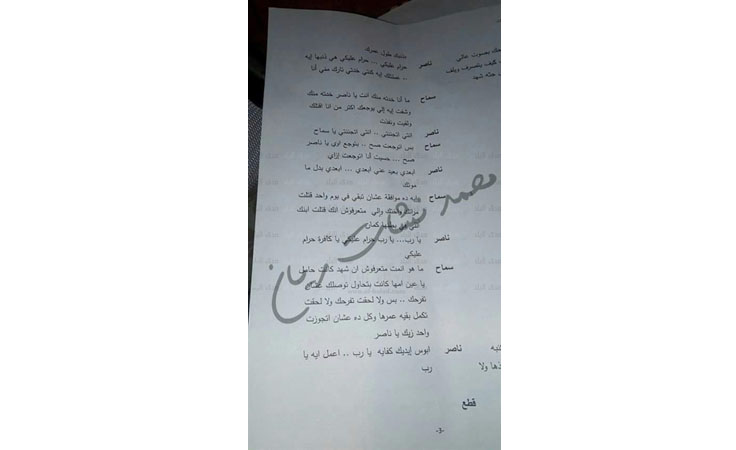 ذنبك طول عمرك
ناصر حرام عليكي ... حرام عليكي هي ذنبها إيه
- عملتلك إيه كنتي خدتي تارك مني أنا
سماح ما أنا خدته منك انت يا ناصر خدته منك
وشفت إيه إلي يوجعك أكتر من انا اقتلك
ولقيت ونفذت
ناصر انتي اتجننتي .. انتي اتجننتي يا سماح
سماح بس اتوجعت صح .. بتوجع اوي يا ناصر
صح ... حسيت أنا اتوجعت إزاي
ناصر ابعدي بعيد عني ابعدي ... ابعدي بدل ما
موتك
سماح وإيه ده موافقة عشان تبقي في يوم واحد قتلت
مراتك واختك والي متعرفوش انك قتلت ابنك
كمان
ناصر يا رب... يا رب حرام عليكي يا كافرة حرام
عليكي
سماح ما هو انت متعرفوش ان شهد كانت حامل
يا عين امها كانت بتحاول توصلك عشان
تفرحك .. بس ولا لحقت تفرحك ولا لحقت
تكمل بقيه عمرها وكل ده عشان اتجوزت
واحد زيك يا ناصر
ناصر ابوس إيديك كفايه يا رب .. اعمل ايه يا
رب
قطع
-3-
بصوت عالي
محمد رمضان